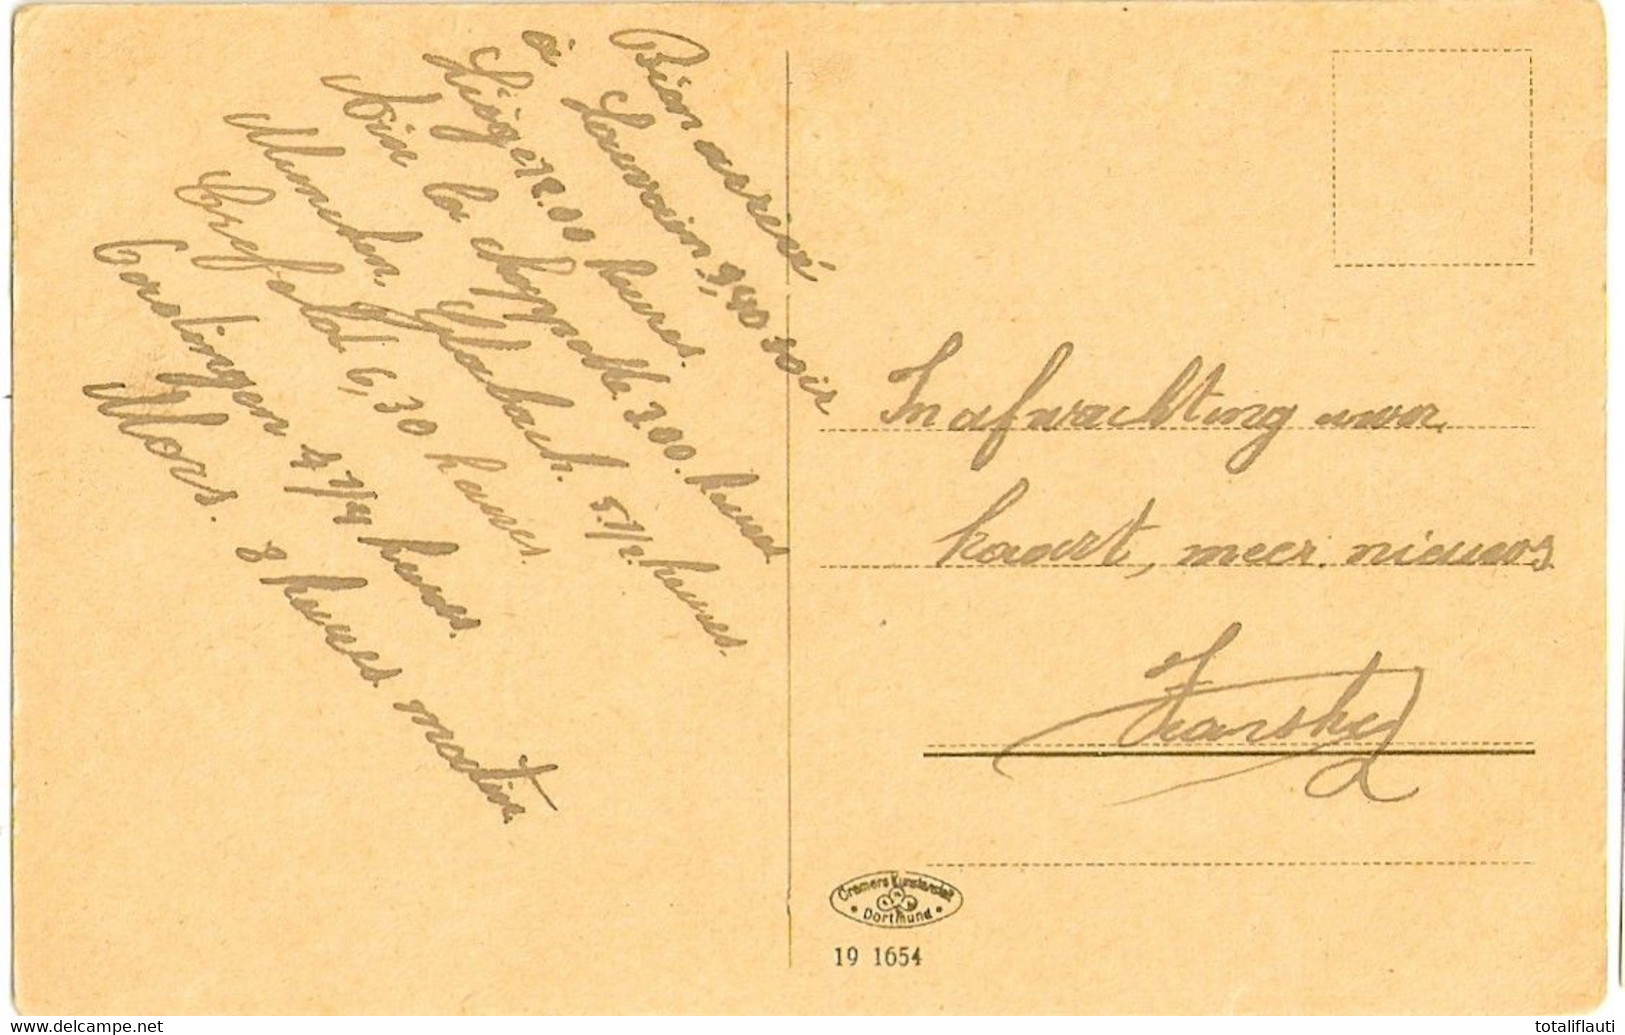 Bien arrivé
à Louvain 9,40 soir
Liége 12.00 heures.
Aix la chappelle 3.00. heures
Munchen Glabach. 5.1/2. heures.
Crefeld 6,30 heures.
Mors. 8 heures matin
In afwachting uwer
kaart, meer nieuws
Cramers Kunstanstalt
Dortmund
19 1654
www.delcampe.net
totaliflauti